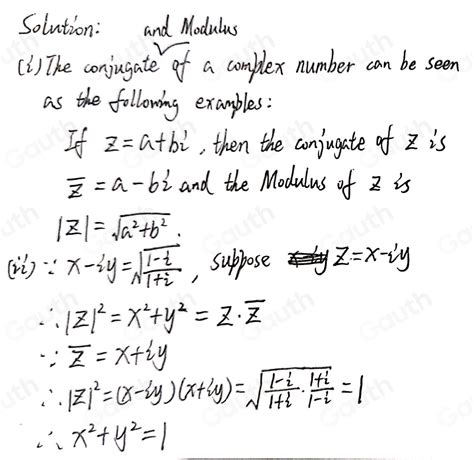 Solution: and Modulus
(i) The conjugate of a complex number can be seen
as the following examples:
If z = a+bi, then the conjugate of z is
z̅ = a-bi and the Modulus of z is
|z| = √(a²+b²).
(ii) ∵ x-iy = √((1-i)/(1+i)), suppose z = x-iy
∴ |z|² = x²+y² = z·z̅
∵ z̅ = x+iy
∴ |z|² = (x-iy)(x+iy) = √((1-i)/(1+i) · (1+i)/(1-i)) = 1
∴ x²+y² = 1